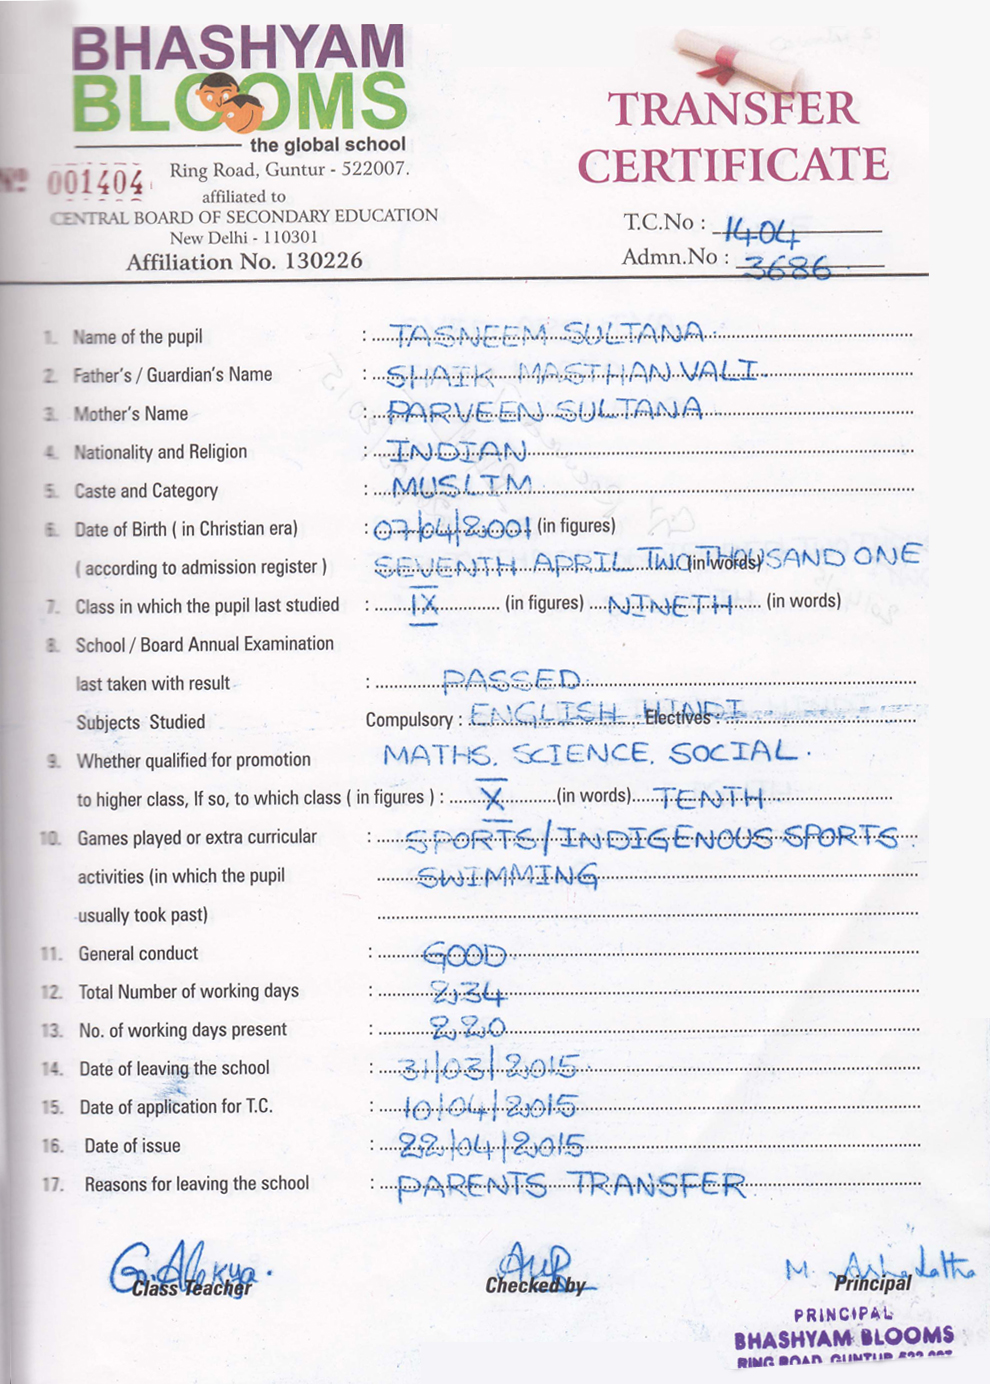 BHASHYAM
BLOOMS
the global school
Ring Road, Guntur - 522007.
Nº 001404
affiliated to
CENTRAL BOARD OF SECONDARY EDUCATION
New Delhi - 110301
Affiliation No. 130226
TRANSFER
CERTIFICATE
T.C.No : 1404
Admn.No : 3686
1. Name of the pupil : TASNEEM SULTANA
2. Father's / Guardian's Name : SHAIK MASTHAN VALI.
3. Mother's Name : PARVEEN SULTANA
4. Nationality and Religion : INDIAN
5. Caste and Category : MUSLIM
6. Date of Birth ( in Christian era) : 07/04/2001 (in figures)
( according to admission register ) SEVENTH APRIL TWO THOUSAND ONE (in words)
7. Class in which the pupil last studied : IX (in figures) NINETH (in words)
8. School / Board Annual Examination
last taken with result : PASSED
Subjects Studied Compulsory : ENGLISH HINDI Electives :
MATHS, SCIENCE, SOCIAL.
9. Whether qualified for promotion
to higher class, If so, to which class ( in figures ) : X (in words) TENTH
10. Games played or extra curricular : SPORTS/INDIGENOUS SPORTS
activities (in which the pupil SWIMMING
usually took past)
11. General conduct : GOOD
12. Total Number of working days : 234
13. No. of working days present : 220
14. Date of leaving the school : 31/03/2015
15. Date of application for T.C. : 10/04/2015
16. Date of issue : 22/04/2015
17. Reasons for leaving the school : PARENTS TRANSFER
G. Alekya.
M. Asha Latha
Class Teacher Checked by Principal
PRINCIPAL
BHASHYAM BLOOMS
RING ROAD, GUNTUR-522 007